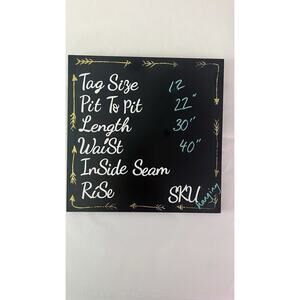 Tag Size 12
Pit To Pit 22"
Length 30"
WaiSt 40"
InSide Seam
RiSe SKU
hanging